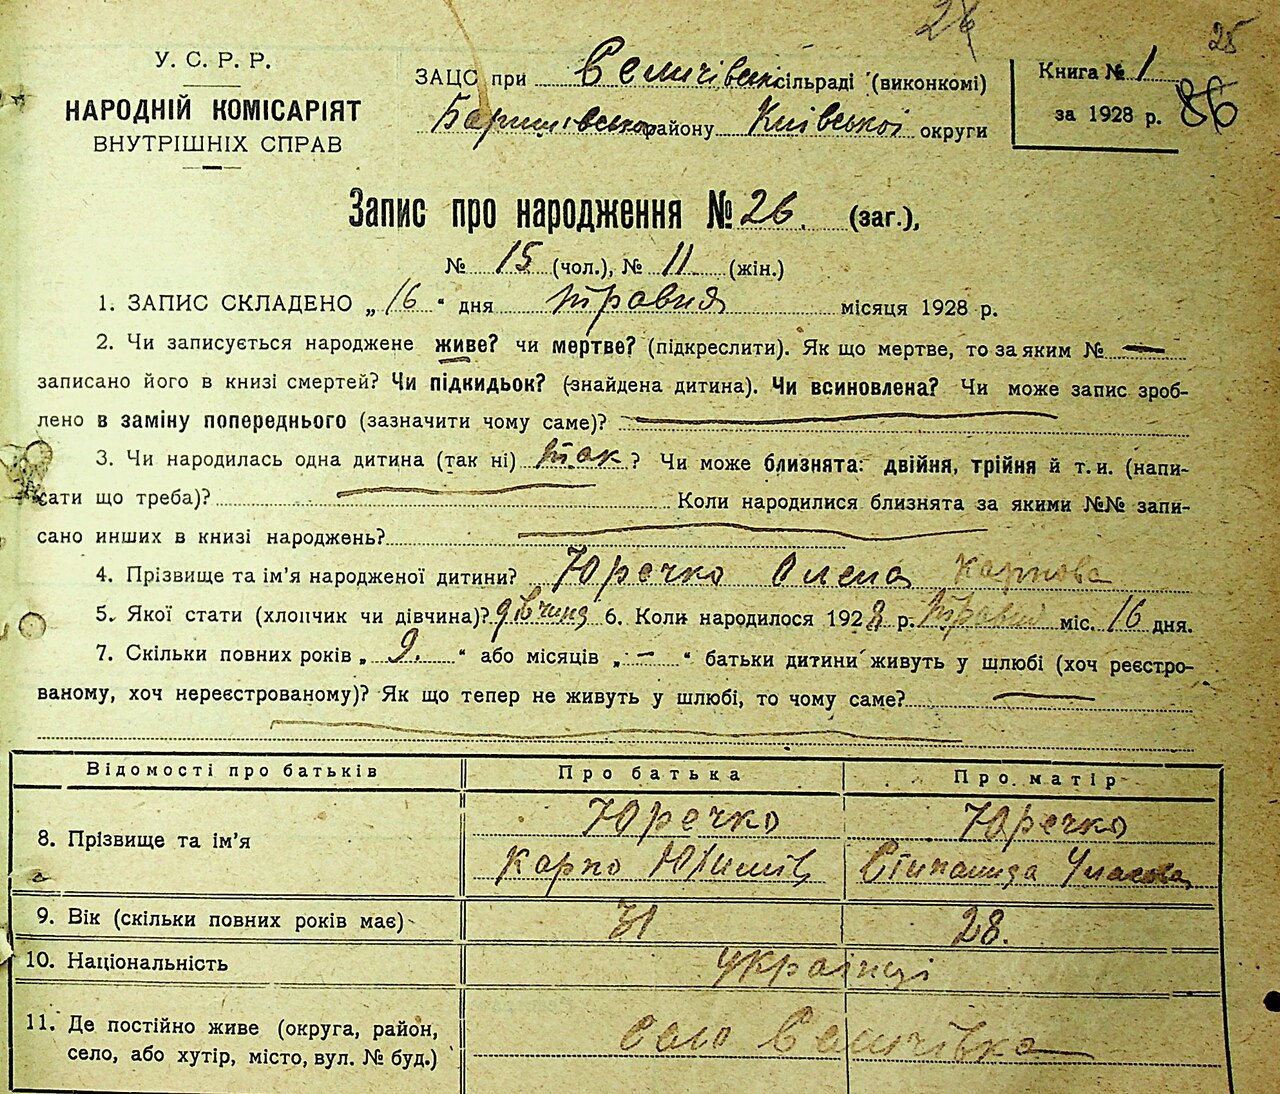 24
25
У. С. Р. Р.
НАРОДНІЙ КОМІСАРІЯТ
ВНУТРІШНІХ СПРАВ
ЗАЦС при Селичівськ. сільраді (виконкомі)
Баришівського району Київської округи
Книга № 1
за 1928 р. 86
Запис про народження № 26. (заг.),
№ 15 (чол.), № 11 (жін.)
1. ЗАПИС СКЛАДЕНО „16“ дня травня місяця 1928 р.
2. Чи записується народжене живе? чи мертве? (підкреслити). Як що мертве, то за яким № —
записано його в книзі смертей? Чи підкидьок? (знайдена дитина). Чи всиновлена? Чи може запис зроб-
лено в заміну попереднього (зазначити чому саме)?
3. Чи народилась одна дитина (так ні) так? Чи може близнята: двійня, трійня й т. и. (напи-
сати що треба)? Коли народилися близнята за якими №№ запи-
сано инших в книзі народжень?
4. Прізвище та ім’я народженої дитини? Юречко Олена Карпова
5. Якої стати (хлопчик чи дівчина)? дівчина 6. Коли народилося 1928 р. травня міс. 16 дня.
7. Скільки повних років „9.“ або місяців „—“ батьки дитини живуть у шлюбі (хоч реєстро-
ваному, хоч нереєстрованому)? Як що тепер не живуть у шлюбі, то чому саме? —
Відомості про батьків Про батька Про матір
8. Прізвище та ім’я Юречко Юречко
Карпо Юхимів Степанида
9. Вік (скільки повних років має) 31 28.
10. Національність українці
11. Де постійно живе (округа, район,
село, або хутір, місто, вул. № буд.) село Селичівка